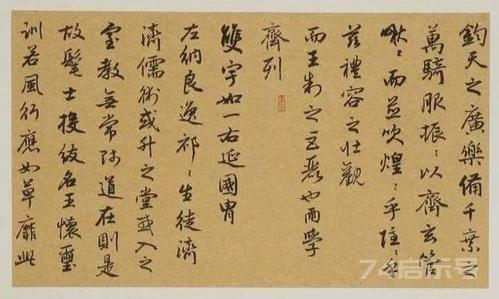 鈞天之廣樂備千乘之
萬騎服振〻以齊玄管
啾〻而並吹煌〻乎隱〻乎
茲禮容之壯觀
而王制之巨麗也兩學
齊列
雙宇如一右延國胄
左納良逸祁〻生徒濟
濟儒術或升之堂或入之
室教無常師道在則是
故髦士投紱名王懷璽
訓若風行應如草靡此
74启示号